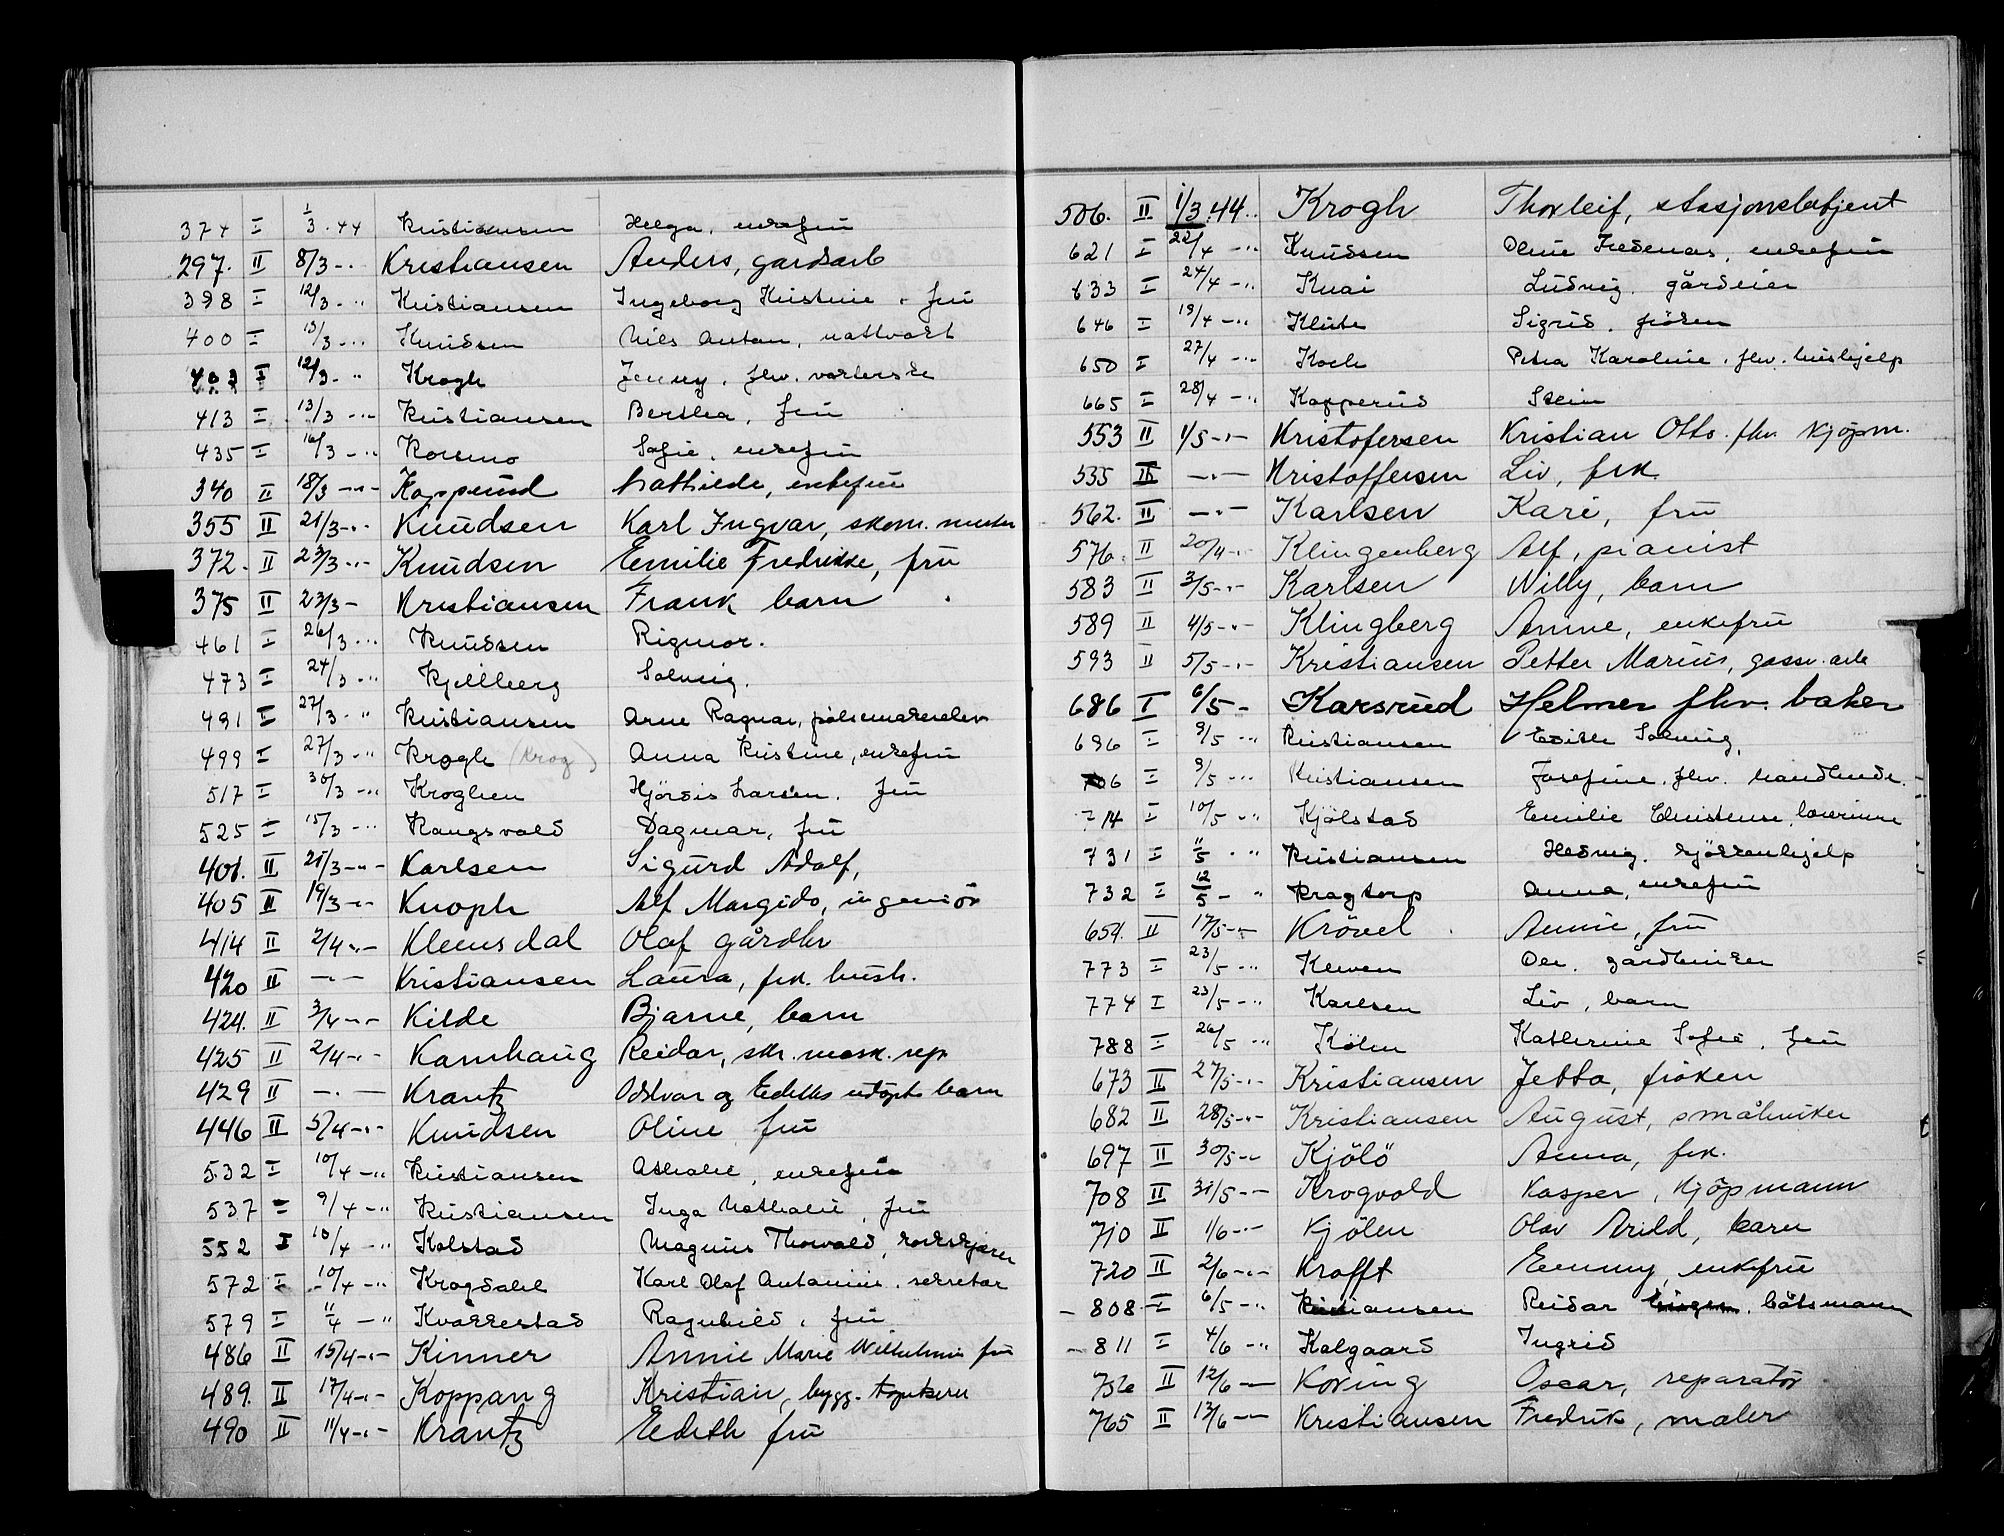 374 I 1/3.44 Kristiansen Helga, enkefru
297. II 8/3-.. Kristiansen Anders, gardsarb
398 I 12/3-.. Kristiansen Ingeborg Kristine, fru
400 I 13/3-.. Knudsen Nils Anton, nattvakt
403 I 12/3-.. Krogh Jenny, fhv. varterske
413 I 13/3-.. Kristiansen Berthea, fru
435 I 16/3-.. Sofie, enkefru
340 II 18/3-.- Kopperud Mathilde, enkefru
355 II 21/3-.- Knudsen Karl Ingvar, skom. mester
372. II 23/3-.- Knudsen Emilie Fredrikke, fru
375 II 23/3- Kristiansen Frank barn
461 I 26/3-.. Knudsen Rigmor.
473 I 24/3-.. Kjellberg Solveig.
491 I 27/3-.. Kristiansen Arne Ragnar, pølsemakerelev
499 I 27/3-.. Krogh (Krog) Anna Kristine, enkefru
517 I 30/3-.. Kroghen Hjördis Larsen, fru
525 I 15/3-.. Kangsvold Dagmar, fru
401. II 21/3-.- Karlsen Sigurd Adolf,
405 II 19/3-.- Knoph Alf Margido, ingeniör
414 II 2/4-.- Klemsdal Olaf gårdbr
420 II -.- Kristiansen Laura, frk. hush.
424. II 3/4-.- Kilde Bjarne, barn
425 II 2/4-.- Kamhaug Reidar, skr. mask. rep
429 II -.- Krantz Oddvar og Edeths udöpte barn
446 II 5/4-.- Knudsen Oline fru
532 I 10/4-.. Kristiansen Athalie, enkefru
537 I 9/4-.. Kristiansen Inga Nathalie, fru
552 I 10/4-.. Kolstad Magnus Thorvald,
572 I 10/4-.. Krogdahl Karl Olaf Antonius, sekretær
579 I 11/4-.. Kvakkestad Ragnhild, fru
486 II 15/4-.- Kinner Annie Marie Wilhelmine fru
489. II 17/4-.- Koppang Kristian, bygg.
490 II 11/4-.- Krantz Edeth fru
506. II 1/3.44.. Krogh Thorleif, stasjonsbetjent
621 I 22/4-.. Knudsen Oline enkefru
633 I 24/4-.. Knai Ludvig. gårdeier
646 I 19/4-.. Klute Sigrid, fröken
650 I 27/4-.. Koch Petra Karoline, fhv. hushjelp
665 I 28/4-.. Kopperud Stein
553 II 1/5-.- Kristofersen Kristian Otto. fhv. kjöpm.
535 II -.- Kristoffersen Liv, frk.
562. II -.- Karlsen Kari, fru
576. II 20/4-.. Klingenberg Alf, pianist
583 II 3/5-.- Karlsen Willy, barn
589 II 4/5-.- Klingberg Anne, enkefru
593 II 5/5-.- Kristiansen Petter Marius, gassv. arb
686 I 6/5- Karsrud Helmer fhv. baker
696 I 9/5-.. Kristiansen Edith Solveig,
706 I 9/5-.. Kristiansen Josefine, fhv. handlende.
714 I 10/5-.. Kjölstad Emilie Christense, lærerinne
731 I 11/5-.. Kristiansen Hedvig. kjökkenhjelp
732 I 12/5-.. Kragtorp Anna, enkefru
654. II 17/5-.- Krövel Annie, fru
773 I 23/5-.. Kleven Ole. gårdbruker
774 I 23/5-.. Karlsen Liv, barn
788 I 26/5-.. Kölen Katherine Sofie, fru
673 II 27/5-.- Kristiansen Jetta, fröken
682 II 28/5-.- Kristiansen August, småbruker
697 II 30/5-.- Kjölö Anna, frk.
708 II 31/5-.- Krogvold Kasper, kjöpmann
710 II 1/6-.- Kjölen Olav Arild, barn
720 II 2/6-.- Krafft Emmy, enkefru
- 808 I 6/5-.. Kristiansen Reidar båtsmann
- 811 I 4/6-.. Kolgaard Ingrid
756 II 12/6-- Koring Oscar, reparatör
765 II 13/6-- Kristiansen Fredrik, maler